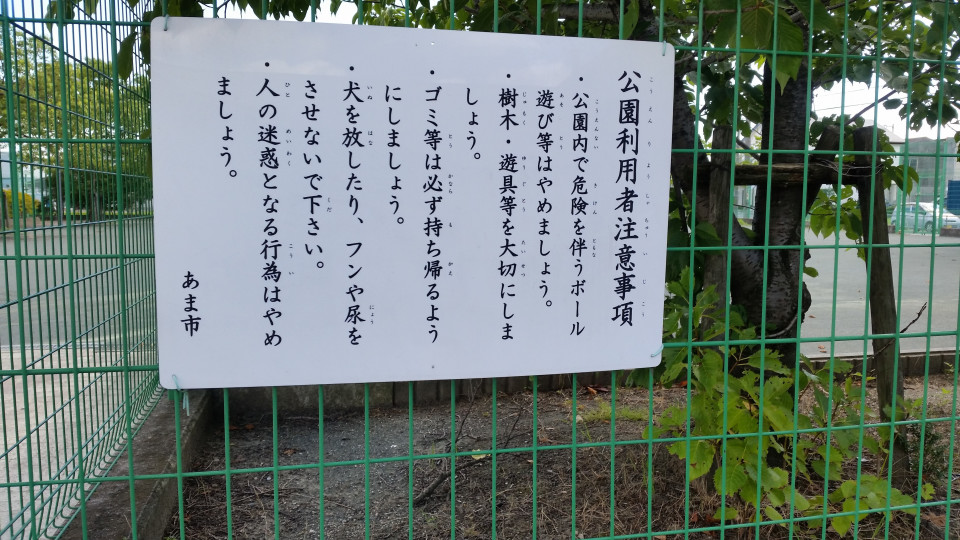 公園利用者注意事項
・公園内で危険を伴うボール
遊び等はやめましょう。
・樹木・遊具等を大切にしま
しょう。
・ゴミ等は必ず持ち帰るよう
にしましょう。
・犬を放したり、フンや尿を
させないで下さい。
・人の迷惑となる行為はやめ
ましょう。
あま市